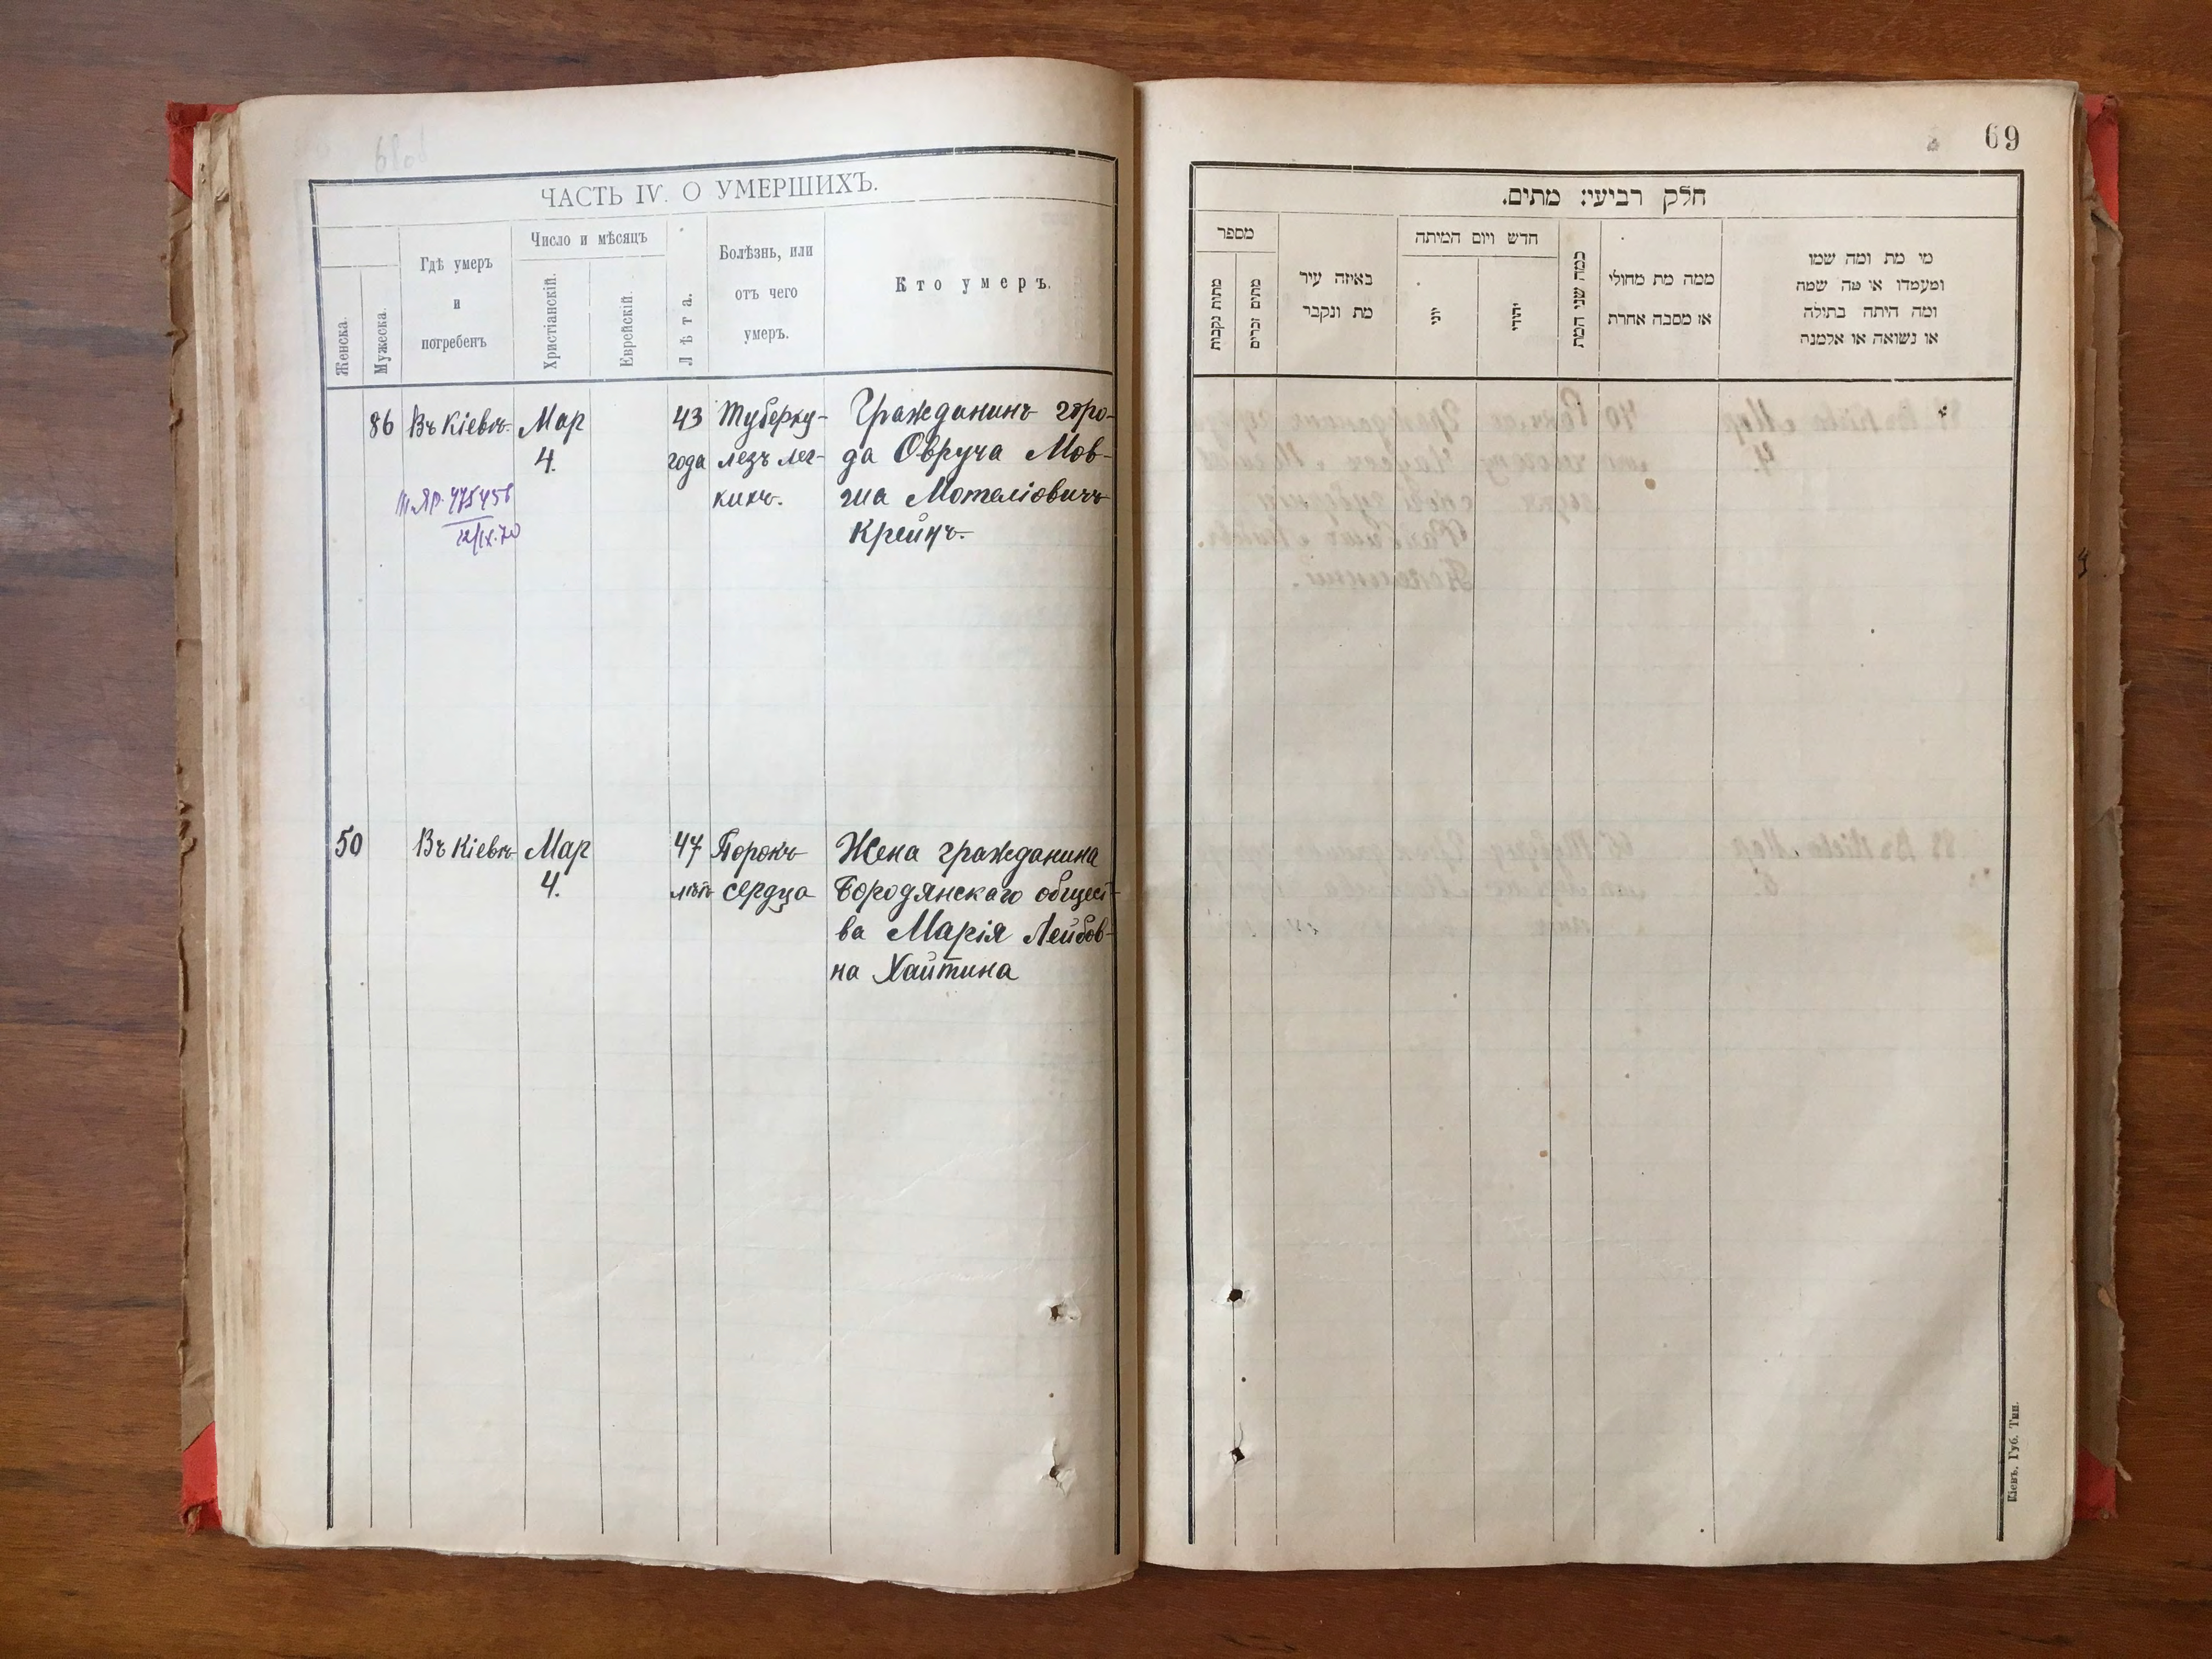 ЧАСТЬ IV. О УМЕРШИХЪ.
Женска.
Мужеска.
Гдѣ умеръ
и
погребенъ
Число и мѣсяцъ
Христіанскій.
Еврейскій.
Лѣта.
Болѣзнь, или
отъ чего
умеръ.
Кто умеръ.
86 Въ Кіевѣ Мар 43 Туберку- Гражданинъ горо-
4. года лезъ лег- да Овруча Мов-
кихъ. ша Мотеліовичъ
Крейнъ.
475458
12/IX.70
50 Въ Кіевѣ Мар 47 Порокъ Жена гражданина
4. лѣтъ сердца Бородянскаго общест-
ва Марія Лейбов-
на Хайтина
69
חלק רביעי: מתים.
מספר
מתות נקבות
מתים זכרים
באיזה עיר
מת ונקבר
חדש ויום המיתה
יוני
יהודי
כמה שני המת
ממה מת מחולי
או מסבה אחרת
מי מת ומה שמו
ומעמדו או מה שמה
ומה היתה בתולה
או נשואה או אלמנה
Кіевъ, Губ. Тип.